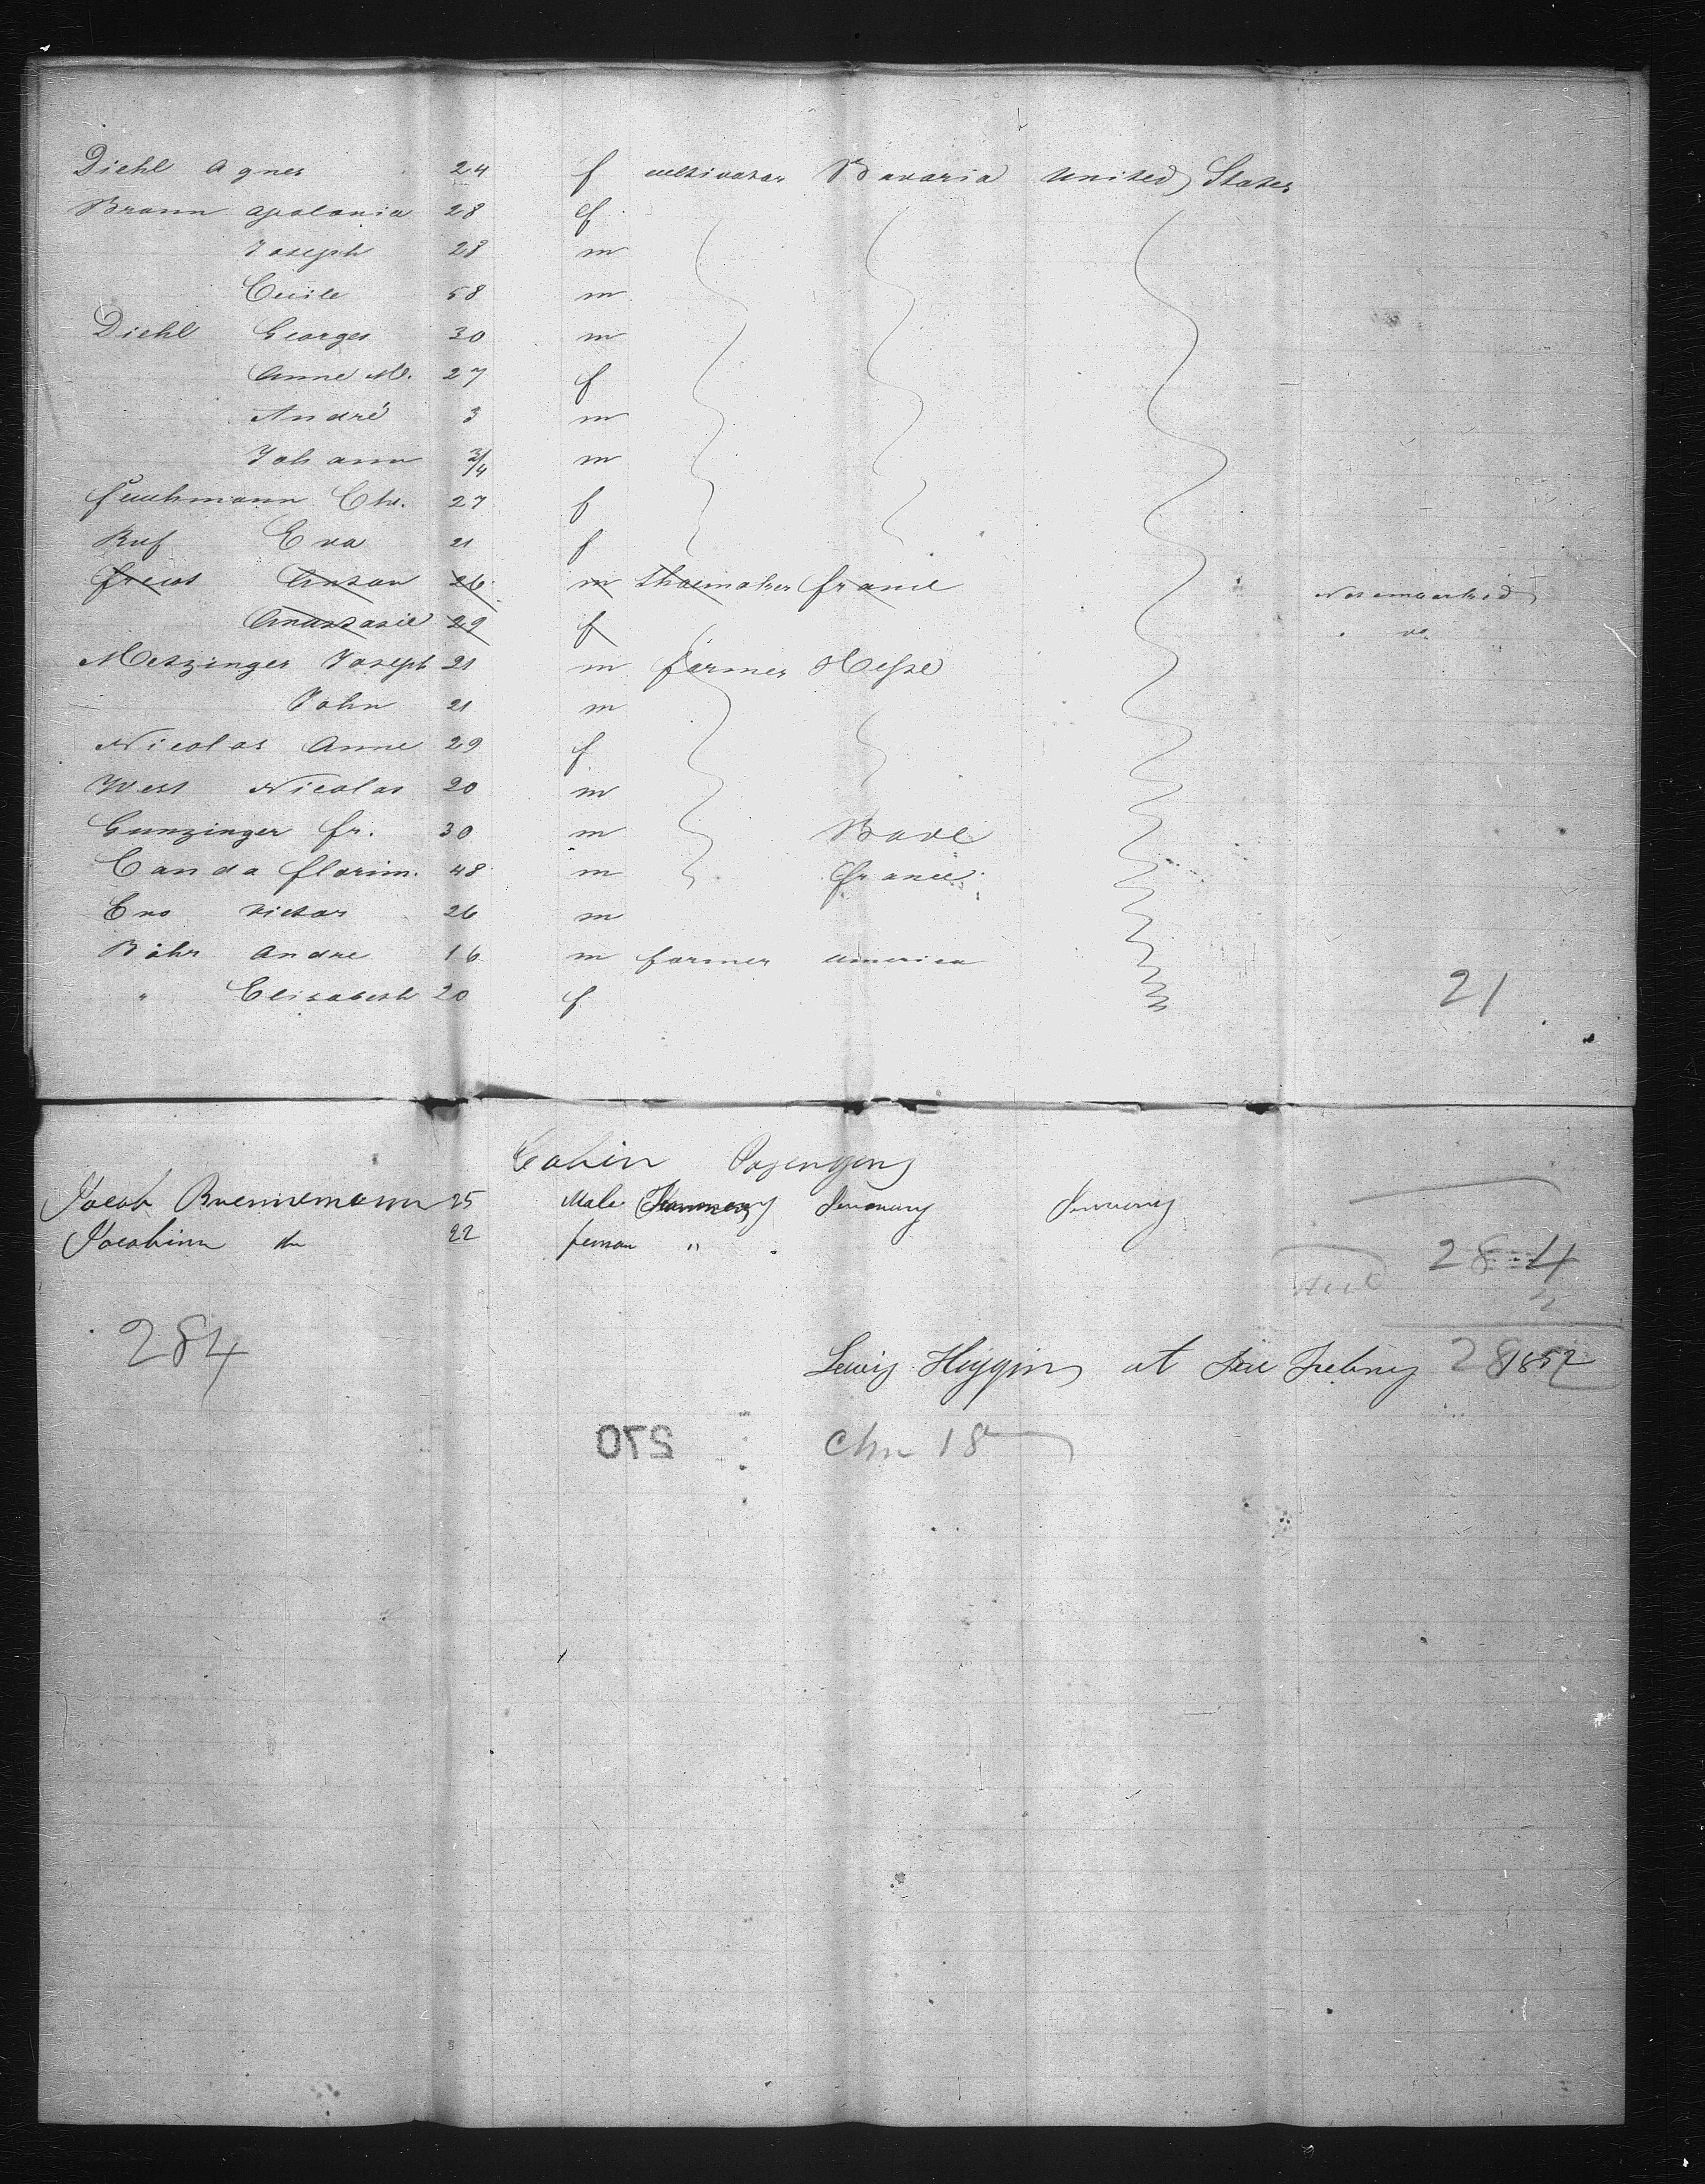 Diehl Agnes 24 f cultivator Bavaria United States
Braun Apolonia 28 f
Joseph 28 m
Cecile 58 m
Diehl Georges 30 m
Anne M. 27 f
André 3 m
Johann 3/4 m
Chr. 27 f
Ruf Eva 21 f
Anton 26 m Shoemaker France Not embarked
Anastasie 29 f do
Metzinger Joseph 21 m farmer Hesse
John 21 m
Nicolas Anne 29 f
West Nicolas 20 m
Gunzinger fr. 30 m Bade
Canda florim. 48 m France
Eno Victor 26 m
Bähr Andre 16 m farmer America
" Elisabeth 20 f 21
Cabin Pasengers
Jacob Bruennemann 25 Male Germany Germany
Jacobina do 22 femal "
284
284
2
Lewis Higgins at 1852
270
18